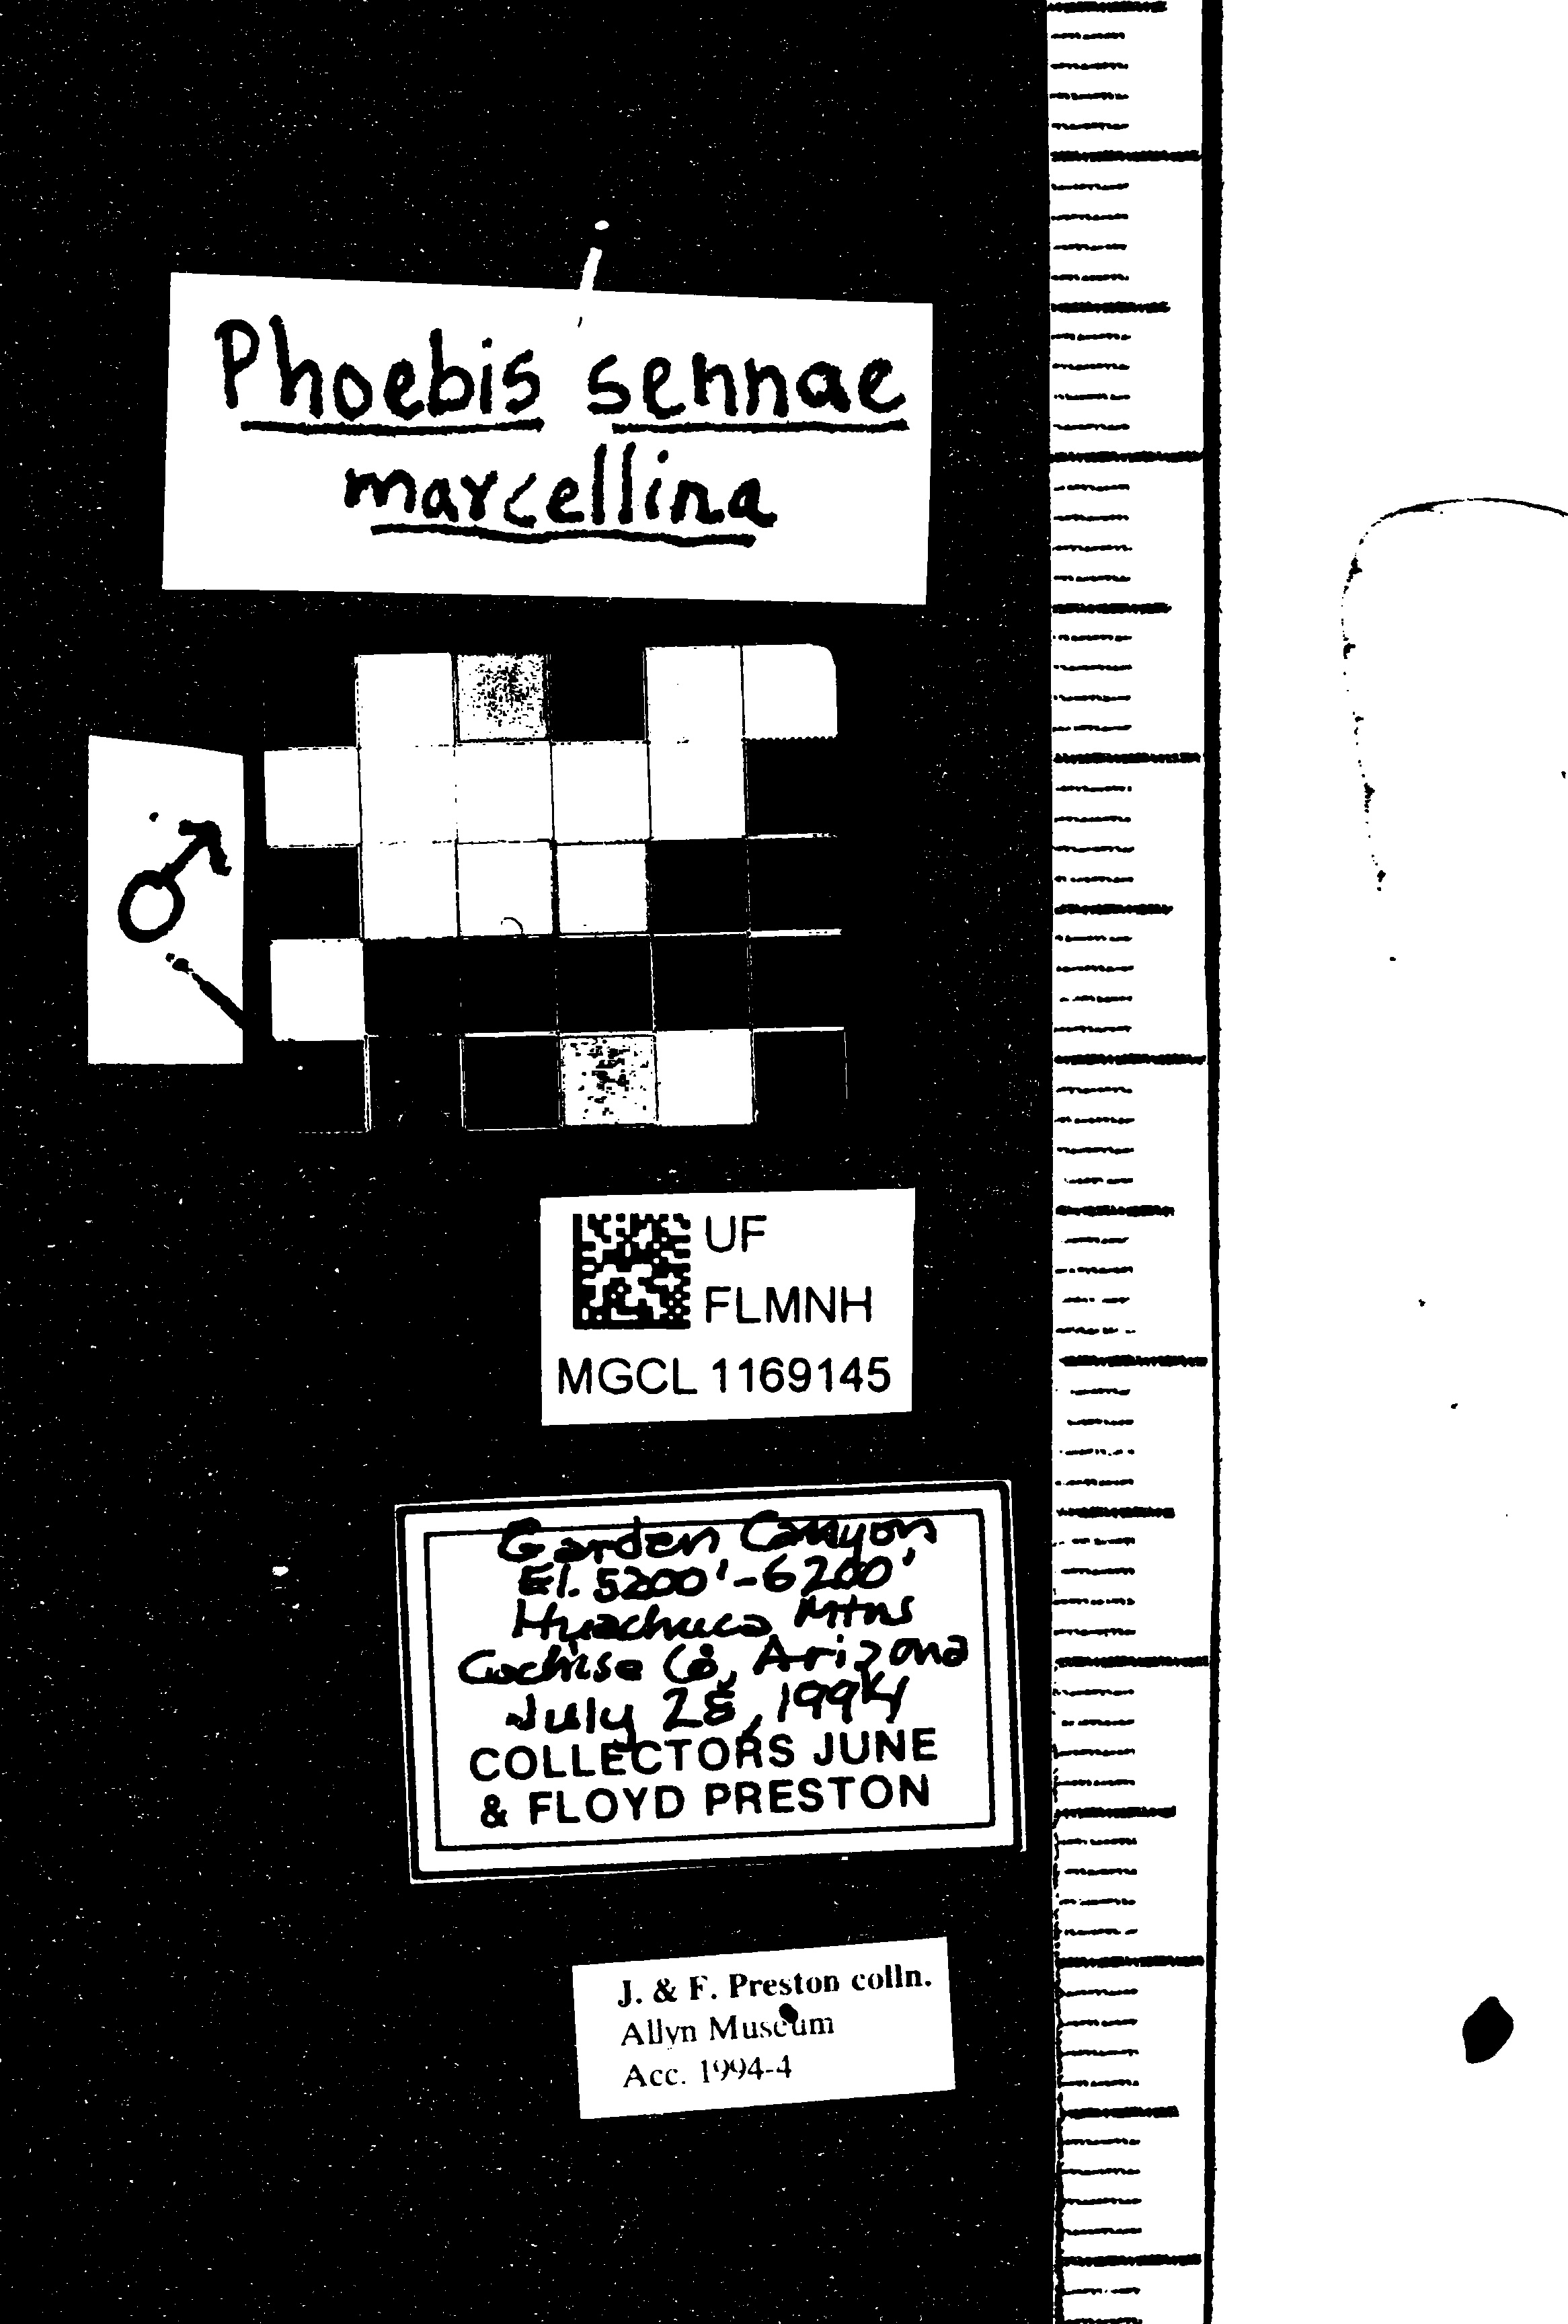 Phoebis sennae
marcellina
♂
UF
FLMNH
MGCL 1169145
Garden Canyon
El. 5200'-6200'
Huachuca Mtns
Cochise Co, Arizona
July 28, 1994
COLLECTORS JUNE
& FLOYD PRESTON
J. & F. Preston colln.
Allyn Museum
Acc. 1994-4